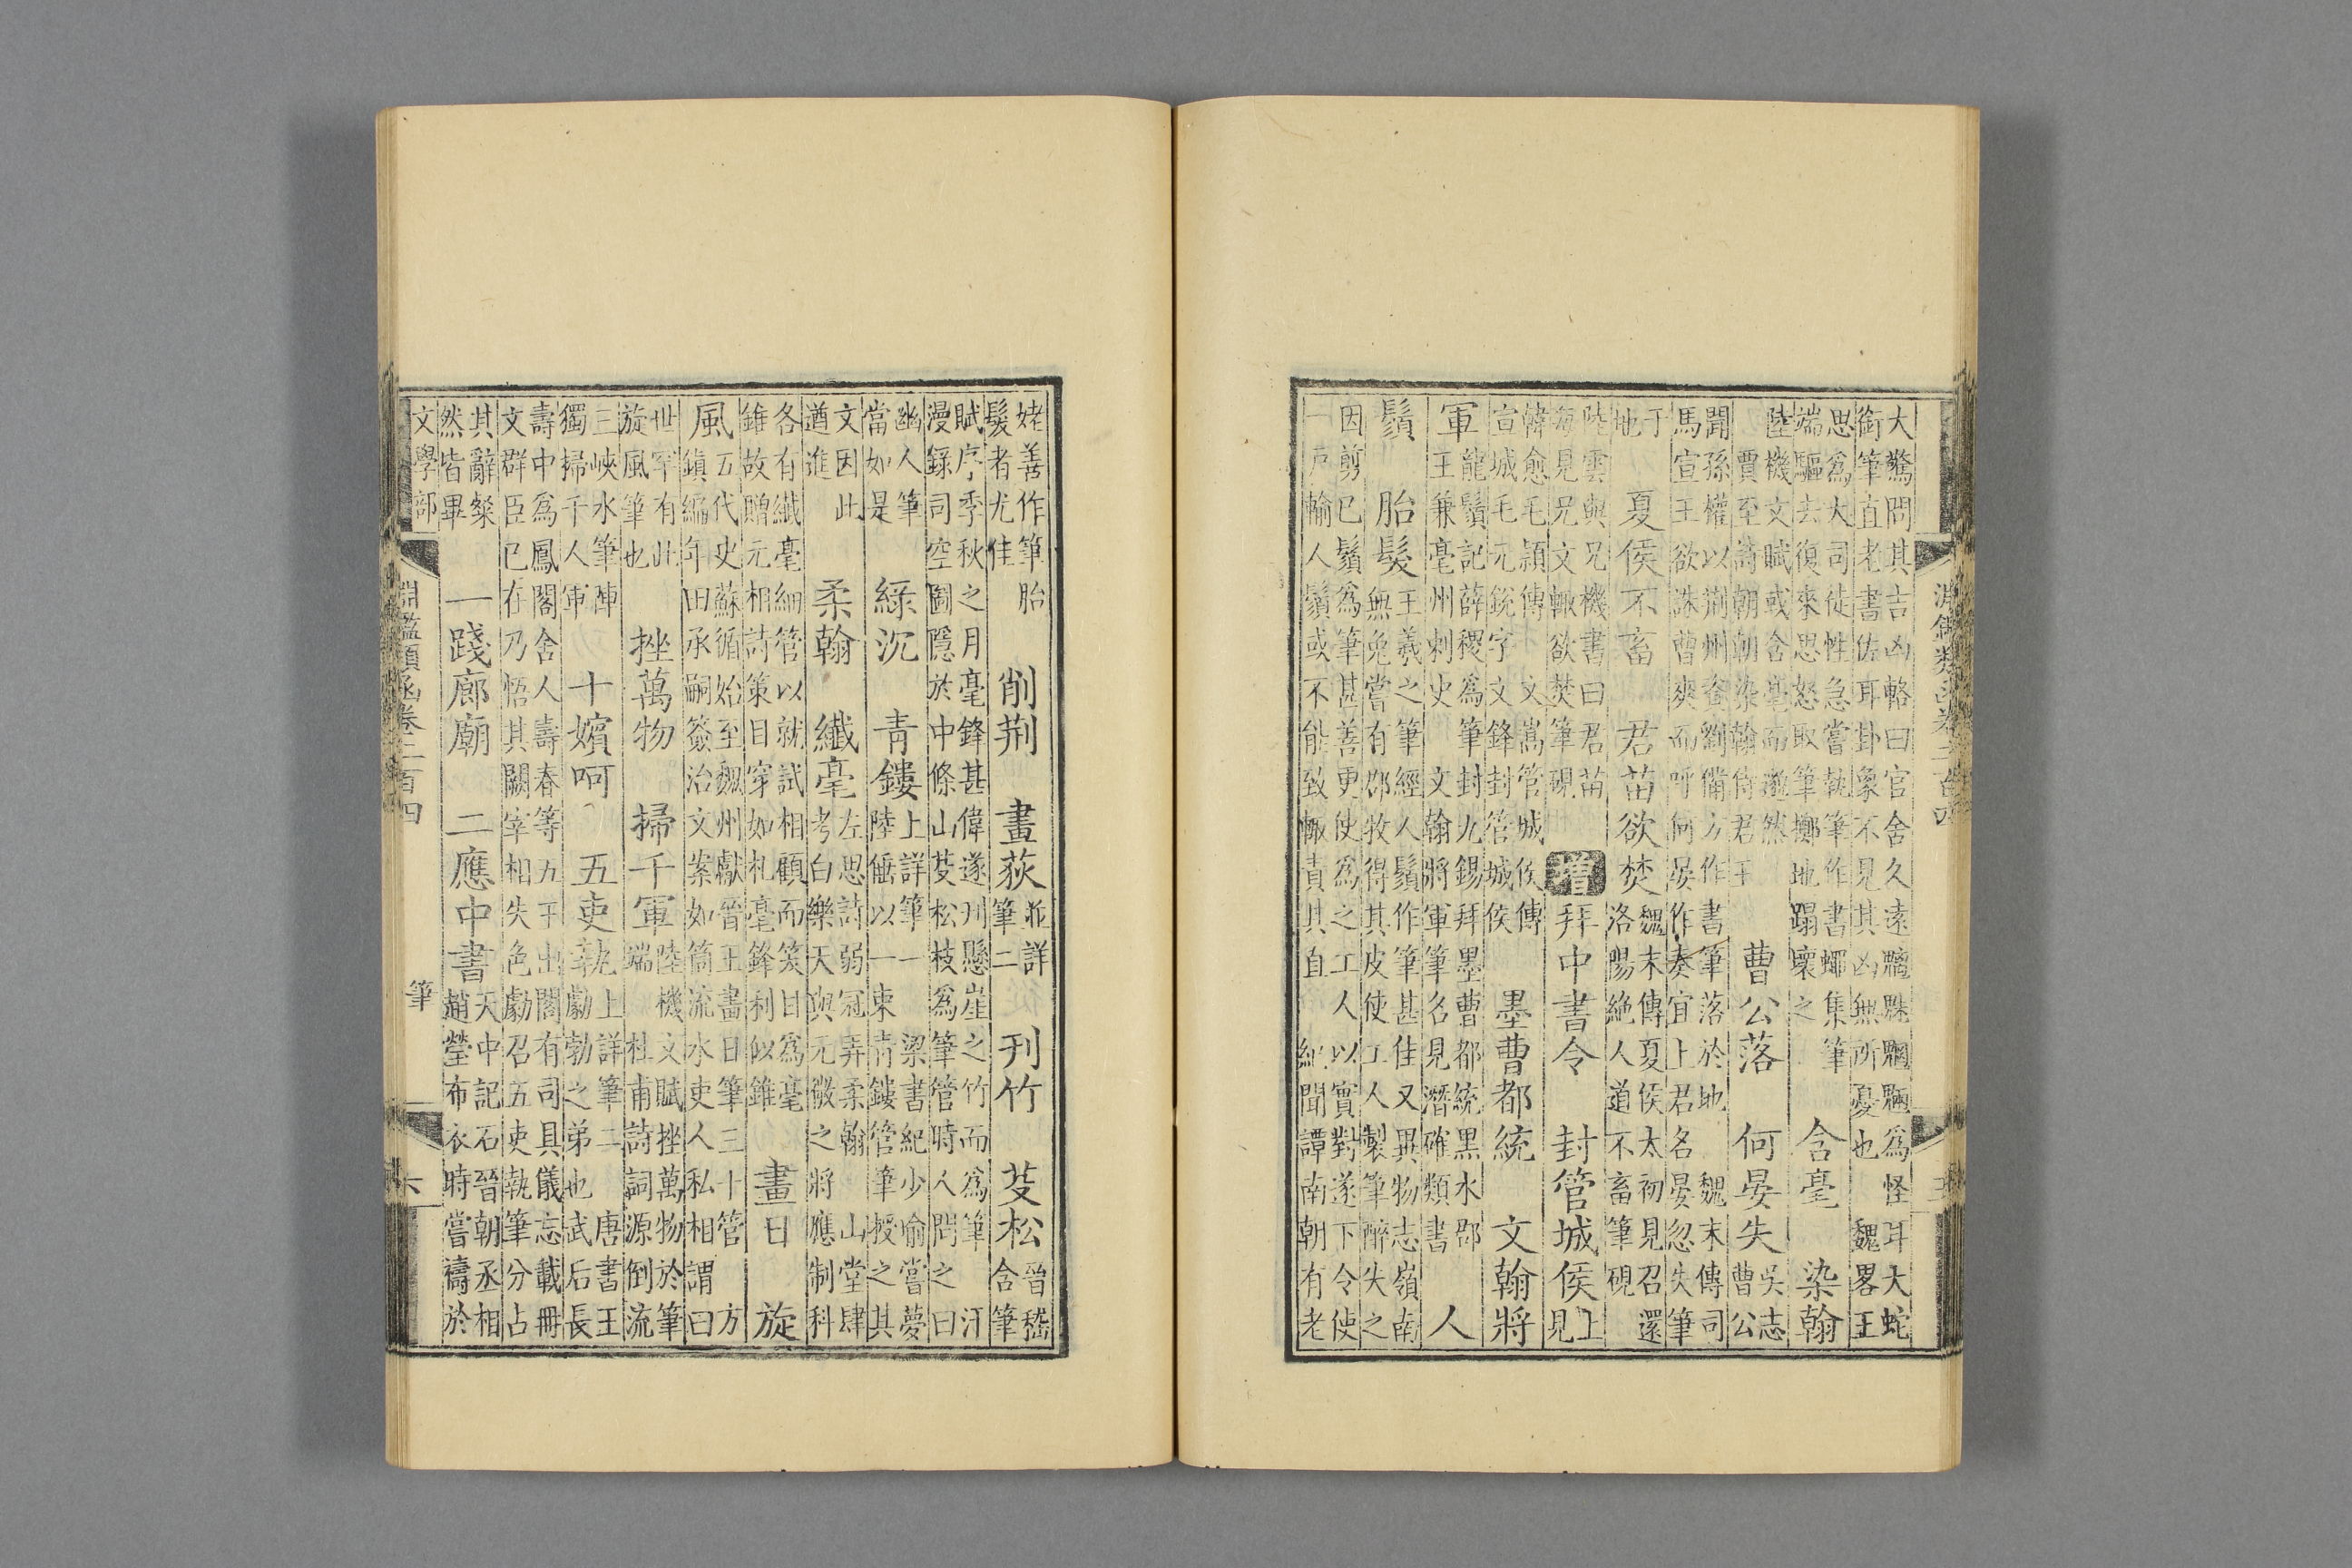 大驚問其吉凶輅曰官舍久遠魑魅魍魎爲怪耳大蛇
銜筆直老書佐耳卦象不見其凶無所憂也 魏畧王
思爲大司徒性急嘗執筆作書蠅集筆
端驅去復來思怒取筆擲地蹋壞之 含毫 染翰
陸機文賦或含毫而邈然
賈至詩朝朝染翰侍君王 曹公落 何晏失 吳志曹公
聞孫權以荆州資劉備方作書筆落於地 魏末傳司
馬宣王欲誅曹爽而呼何晏作奏宜上君名晏忽失筆
于地 夏侯不畜 君苗欲焚 魏末傳夏侯太初見召還
洛陽絶人道不畜筆硯
陸雲與兄機書曰君苗
每見兄文輙欲焚筆硯 增 拜中書令 封管城侯 上見
韓愈毛頴傳 文嵩管城侯傳
宣城毛元銳字文鋒封管城侯 墨曹都統 文翰將
軍 龍鬚記薛稷爲筆封九錫拜墨曹都統黑水郡
王兼毫州刺史 文翰將軍筆名見潛確類書 人
鬚 胎髮 王羲之筆經人鬚作筆甚佳又異物志嶺南
無兔嘗有郡牧得其皮使工人製筆醉失之
因剪己鬚爲筆甚善更使爲之工人以實對遂下令使
一戶輸人鬚或不能致輙責其直 紀聞譚南朝有老
姥善作筆胎
髮者尤佳 削荆 畫荻 並詳筆二 刊竹 芟松 晉嵇含筆
賦序季秋之月毫鋒甚偉遂刊懸崖之竹而爲筆 汗
漫錄司空圖隱於中條山芟松枝爲筆管時人問之曰
幽人筆
當如是 綠沉 青鏤 上詳筆一 梁書紀少瑜嘗夢
陸倕以一束青鏤管筆授之其
文因此
遒進 柔翰 纖毫 左思詩弱冠弄柔翰 山堂肆
考白樂天與元微之將應制科
各有纖毫細管以就試相顧而笑目爲毫
錐故贈元相詩策目穿如札毫鋒利似錐 畫日 旋
風 五代史蘇循始至魏州獻晉王畫日筆三十管 方
鎮編年田承嗣簽治文案如筒流水吏人私相謂曰
世罕有此
旋風筆也 挫萬物 掃千軍 陸機文賦挫萬物於筆
端 杜甫詩詞源倒流
三峽水筆陣
獨掃千人軍 十嬪呵 五吏執 上詳筆二 唐書王
勮勃之弟也武后長
壽中爲鳳閣舍人壽春等五王出閣有司具儀忘載冊
文群臣已在乃悟其闕宰相失色勮召五吏執筆分占
其辭粲
然皆畢 一踐廊廟 二應中書 天中記石晉朝丞相
趙瑩布衣時嘗禱於
文學部
淵鑑類函卷二百四
筆
六